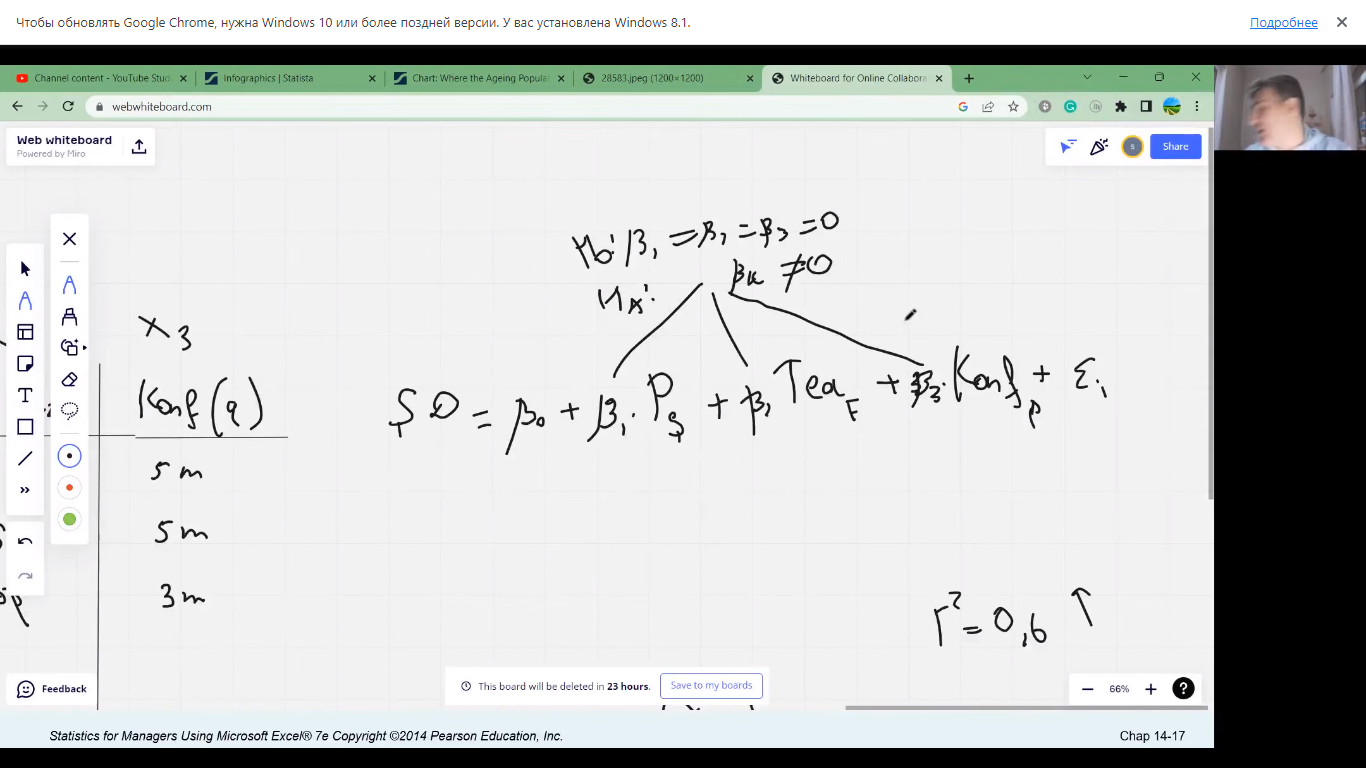 Чтобы обновлять Google Chrome, нужна Windows 10 или более поздней версии. У вас установлена Windows 8.1.
Подробнее
Channel content - YouTube Stud
Infographics | Statista
Chart: Where the Ageing Popula
28583.jpeg (1200×1200)
Whiteboard for Online Collabora
webwhiteboard.com
Web whiteboard
Powered by Miro
Share
H0: β1 = β2 = β3 = 0
HA: βk ≠ 0
X3
Konf (q)
5 m
5 m
3 m
SD = β0 + β1 · P$ + β2 TeaF + β3 · Konfp + Σi
r² = 0,6 ↑
Feedback
This board will be deleted in 23 hours.
Save to my boards
66%
Statistics for Managers Using Microsoft Excel® 7e Copyright ©2014 Pearson Education, Inc.
Chap 14-17